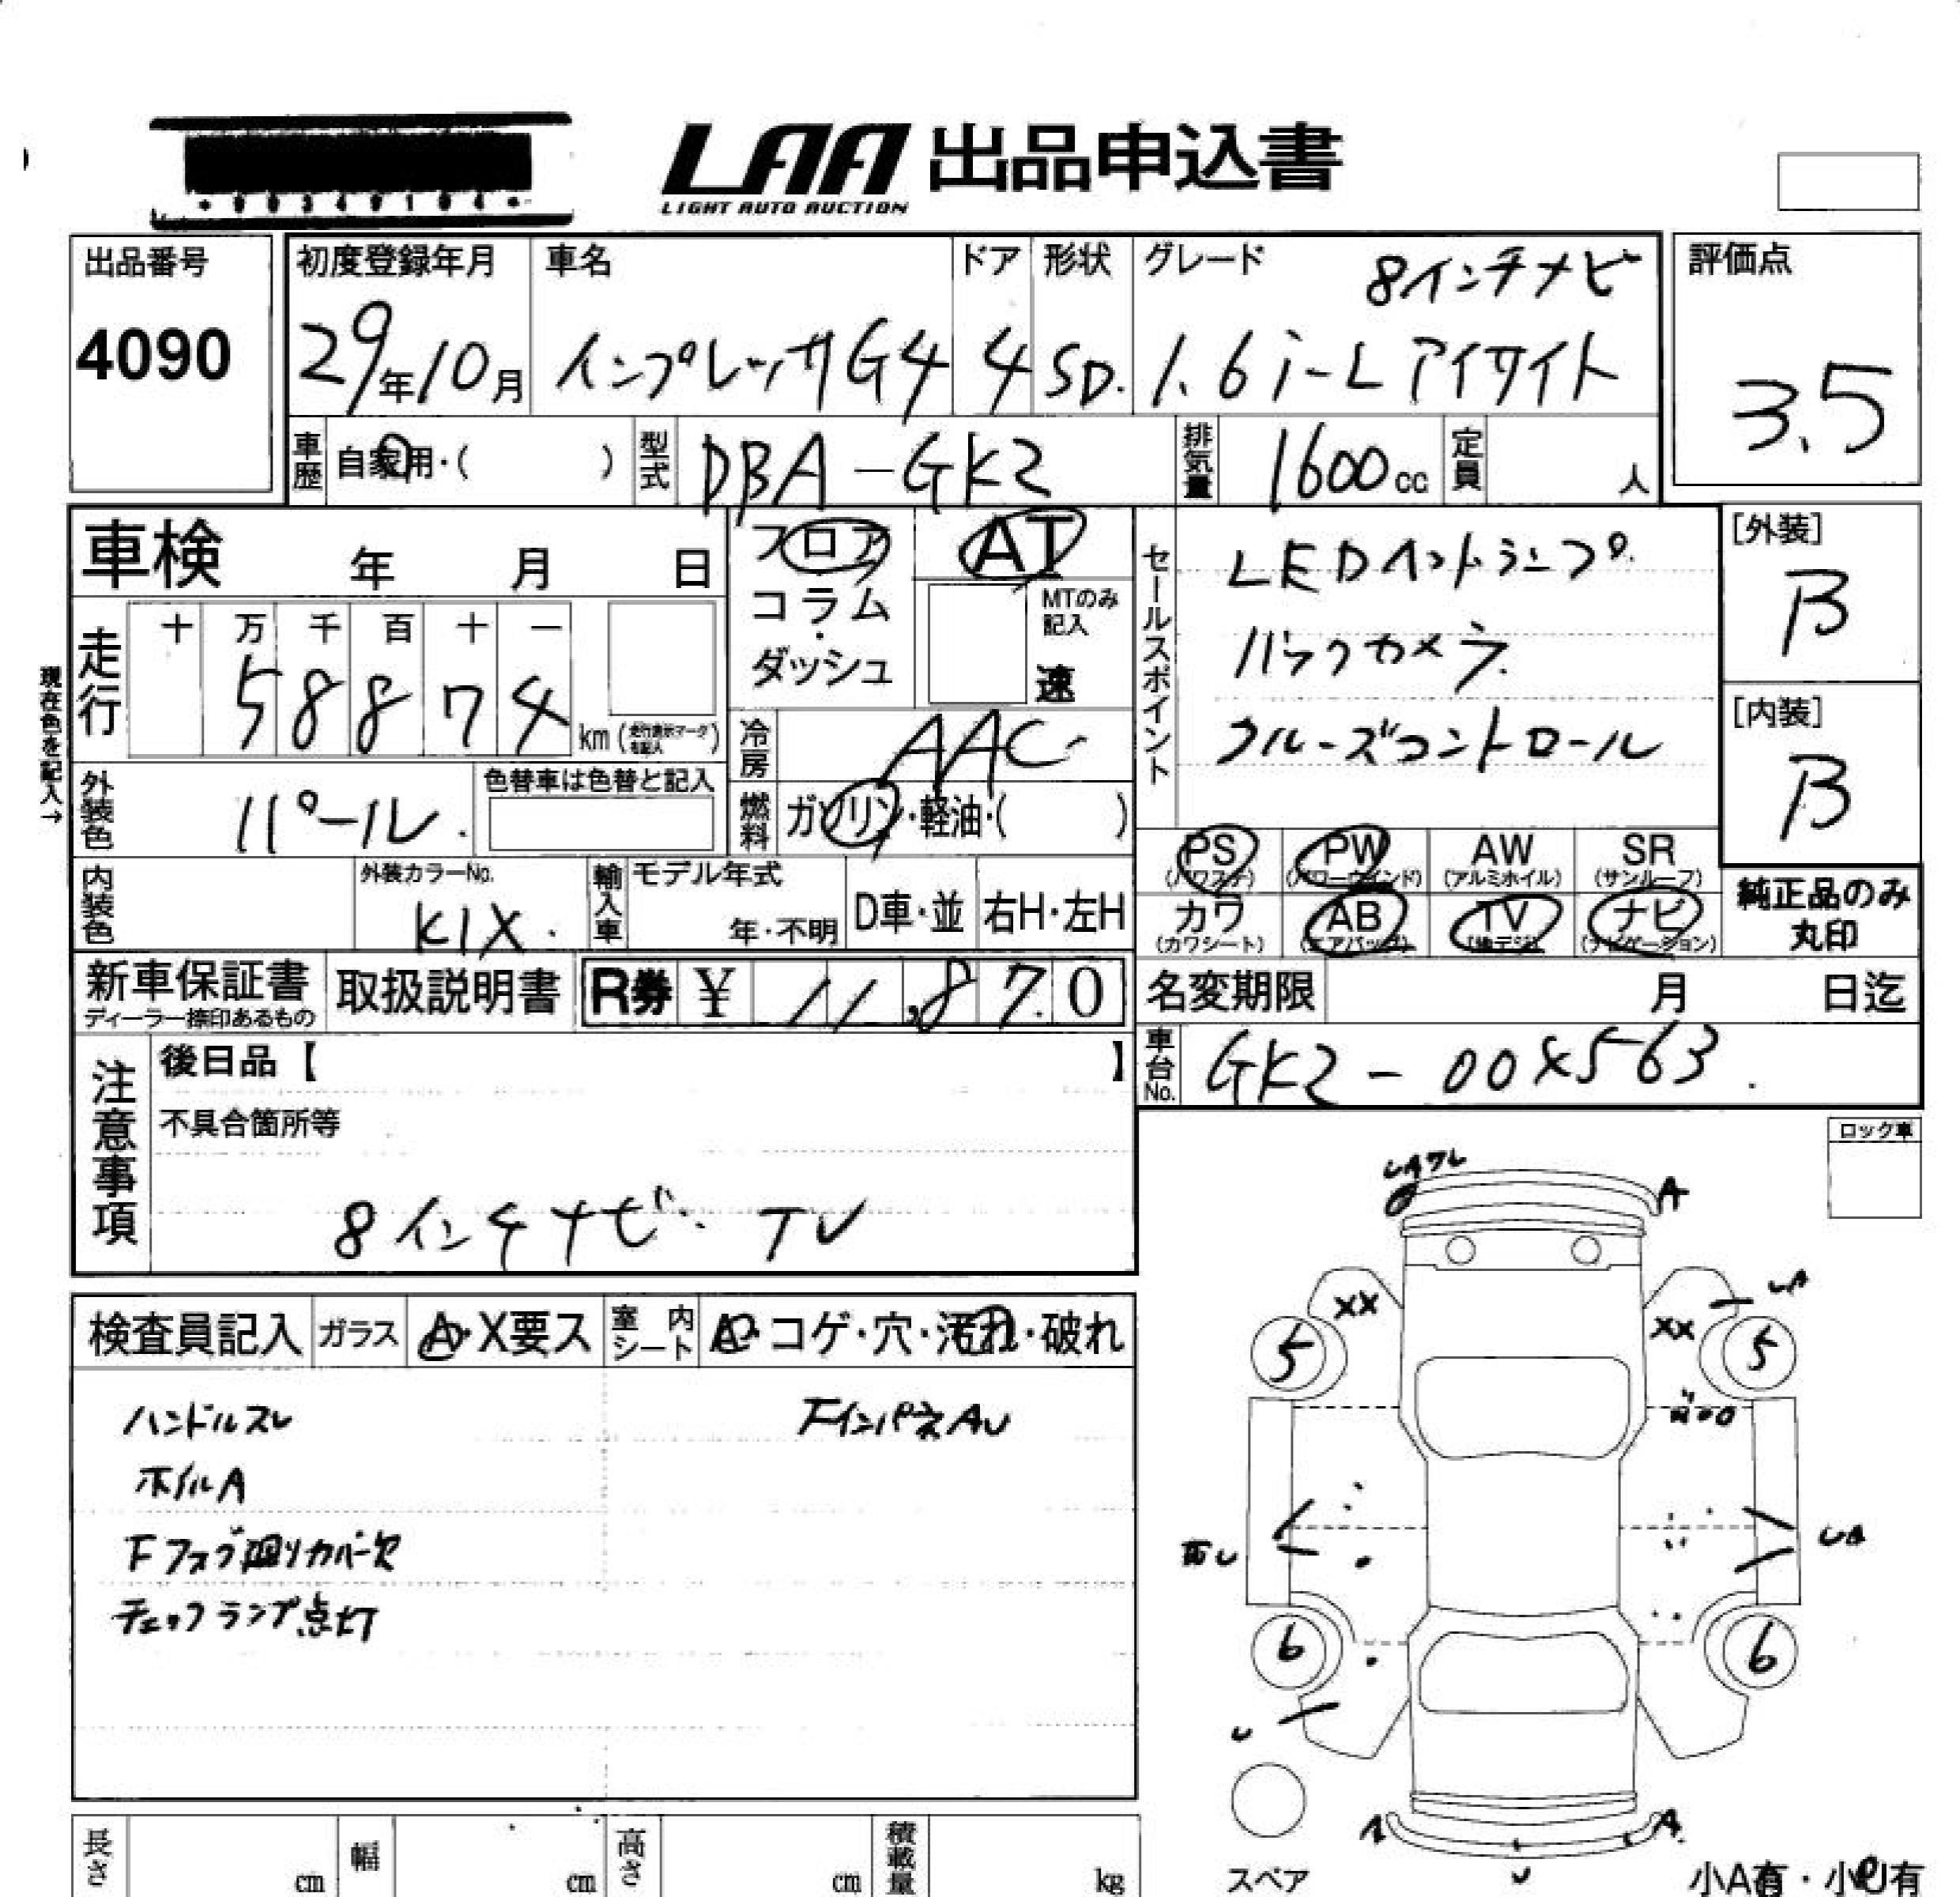 LAA 出品申込書
LIGHT AUTO AUCTION
出品番号
4090
初度登録年月
29年10月
車名
インプレッサG4
ドア
4
形状
SD.
グレード
8インチナビ
1.6i-L アイサイト
評価点
3.5
車歴 自家用・( )
型式 DBA-GK2
排気量 1600cc
定員 人
車検 年 月 日
フロア
コラム
・
ダッシュ
AT
MTのみ
記入
速
走行
十 万 千 百 十 一
5 8 8 7 4
km
現在色を記入→
冷房 AAC
外装色 パール.
色替車は色替と記入
燃料 ガソリン・軽油・( )
内装色
外装カラーNo.
K1X.
輸入車
モデル年式
年・不明
D車・並
右H・左H
セールスポイント
LEDヘッドランプ
バックカメラ
クルーズコントロール
[外装]
B
[内装]
B
PS
(パワステ)
PW
(パワーウインド)
AW
(アルミホイル)
SR
(サンルーフ)
カワ
(カワシート)
AB
(エアバッグ)
TV
(地デジ)
ナビ
(ナビゲーション)
純正品のみ
丸印
新車保証書
ディーラー捺印あるもの
取扱説明書
R券 ¥ 11,870
名変期限 月 日迄
車台No. GK2-00X563.
注意事項
後日品【 】
不具合箇所等
8インチナビ. TV
ロック車
検査員記入
ガラス
A・X要ス
室内シート
コゲ・穴・汚れ・破れ
ハンドルスレ
ホイルA
Fフォグ廻りカバー欠
チェックランプ点灯
FインパネAU
UAワレ
A
XX
XX
UA
5
5
UA
6
6
U
A
A
U
スペア
小A有・小U有
長さ cm
幅 cm
高さ cm
積載量 kg